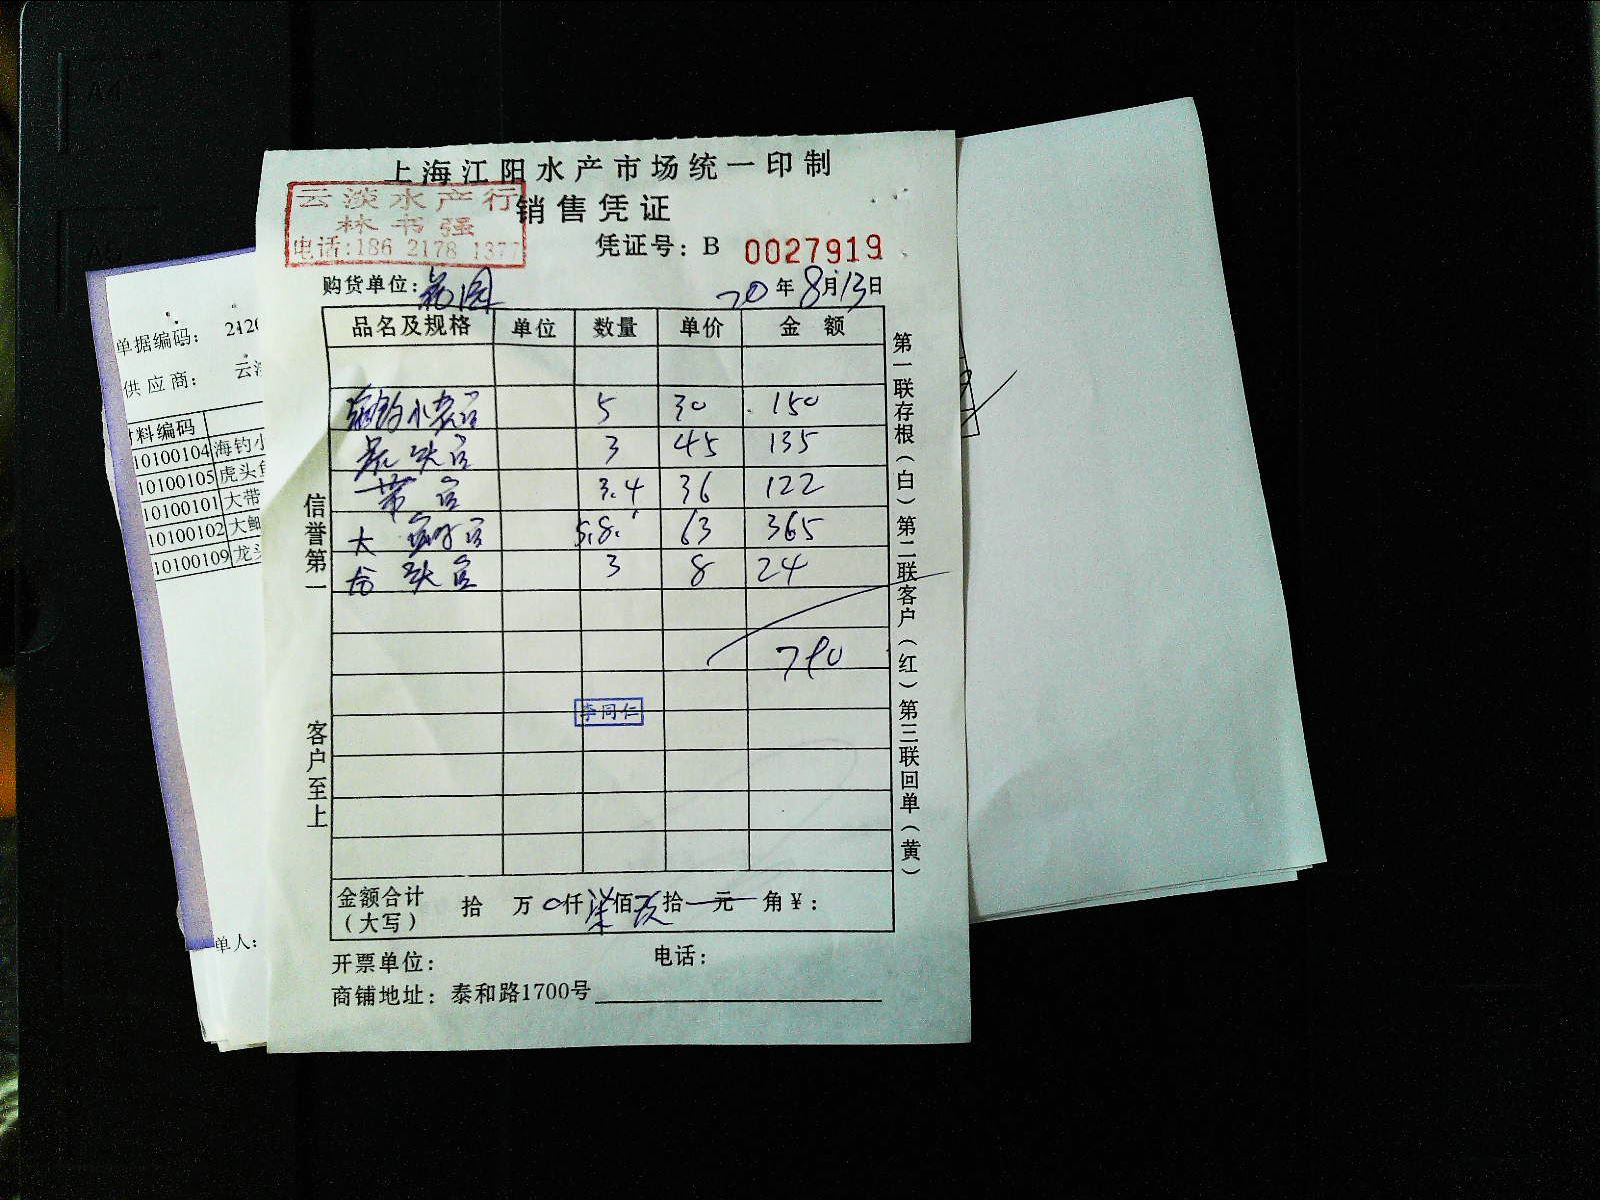 上海江阳水产市场统一印制
云淡水产行
林书强
电话:186 2178 1377
销售凭证
凭证号: B 0027919
购货单位:
20年8月13日
品名及规格 单位 数量 单价 金额
海钓小黄鱼 5 30 150
虎头鱼 3 45 135
带鱼 3.4 36 122
大 鱼 5.8 63 365
龙头鱼 3 8 24
790
李同仁
金额合计(大写) 拾 万 0仟柒佰玖拾一元 角¥:
开票单位: 电话:
商铺地址: 泰和路1700号
信誉第一
客户至上
第一联存根(白)第二联客户(红)第三联回单(黄)
单据编码:
供应商:
料编码
10100104 海钓小
10100105 虎头
10100101 大带
10100102 大
10100109 龙
单人:
A4